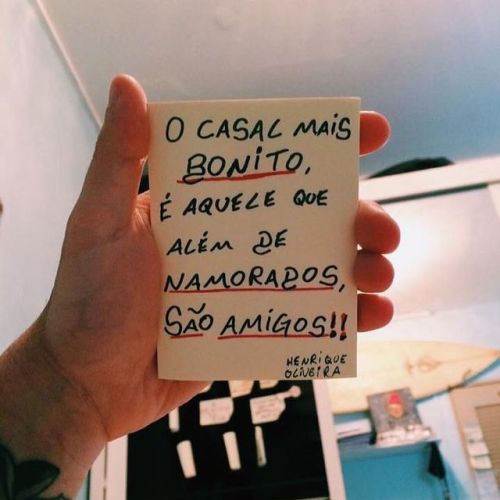 O CASAL MAIS
BONITO,
É AQUELE QUE
ALÉM DE
NAMORADOS,
SÃO AMIGOS!!
HENRIQUE
OLIVEIRA